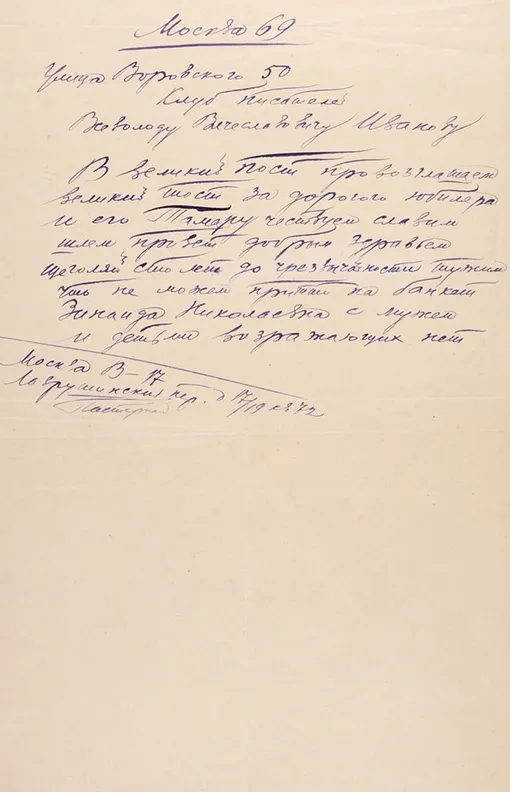 Москва 69
Улица Воровского 50
Клуб писателей
Всеволоду Вячеславовичу Иванову
В великий пост провозглашаем
великий тост за дорогого юбиляра
и его Тамару чествуем славим
шлем привет добрым здравьем
щеголяй сто лет до чрезвычайности тужим
что не можем притти на банкет
Зинаида Николаевна с мужем
и детьми возражающих нет
Москва В-17
Лаврушинский пер. д 17/19 кв 72
Пастернак